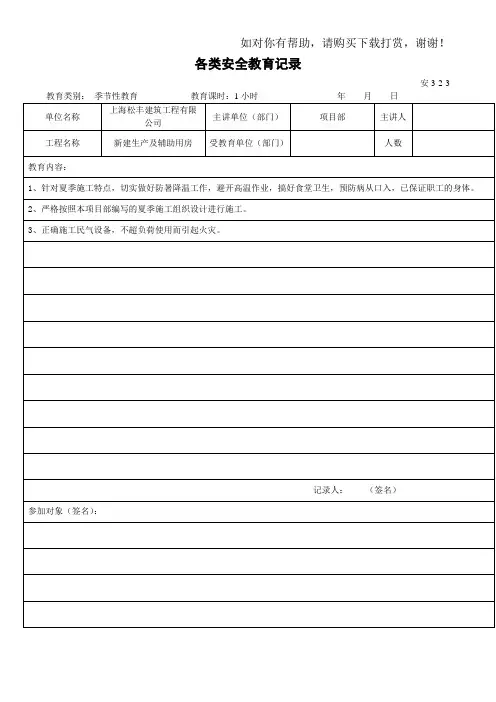 如对你有帮助，请购买下载打赏，谢谢！
各类安全教育记录
安 3-2-3
教育类别： 季节性教育 教育课时：1 小时 年 月 日
单位名称 上海松丰建筑工程有限公司 主讲单位（部门） 项目部 主讲人
工程名称 新建生产及辅助用房 受教育单位（部门） 人数
教育内容：
1、针对夏季施工特点，切实做好防暑降温工作，避开高温作业，搞好食堂卫生，预防病从口入，已保证职工的身体。
2、严格按照本项目部编写的夏季施工组织设计进行施工。
3、正确施工民气设备，不超负荷使用而引起火灾。
记录人： （签名）
参加对象（签名）：